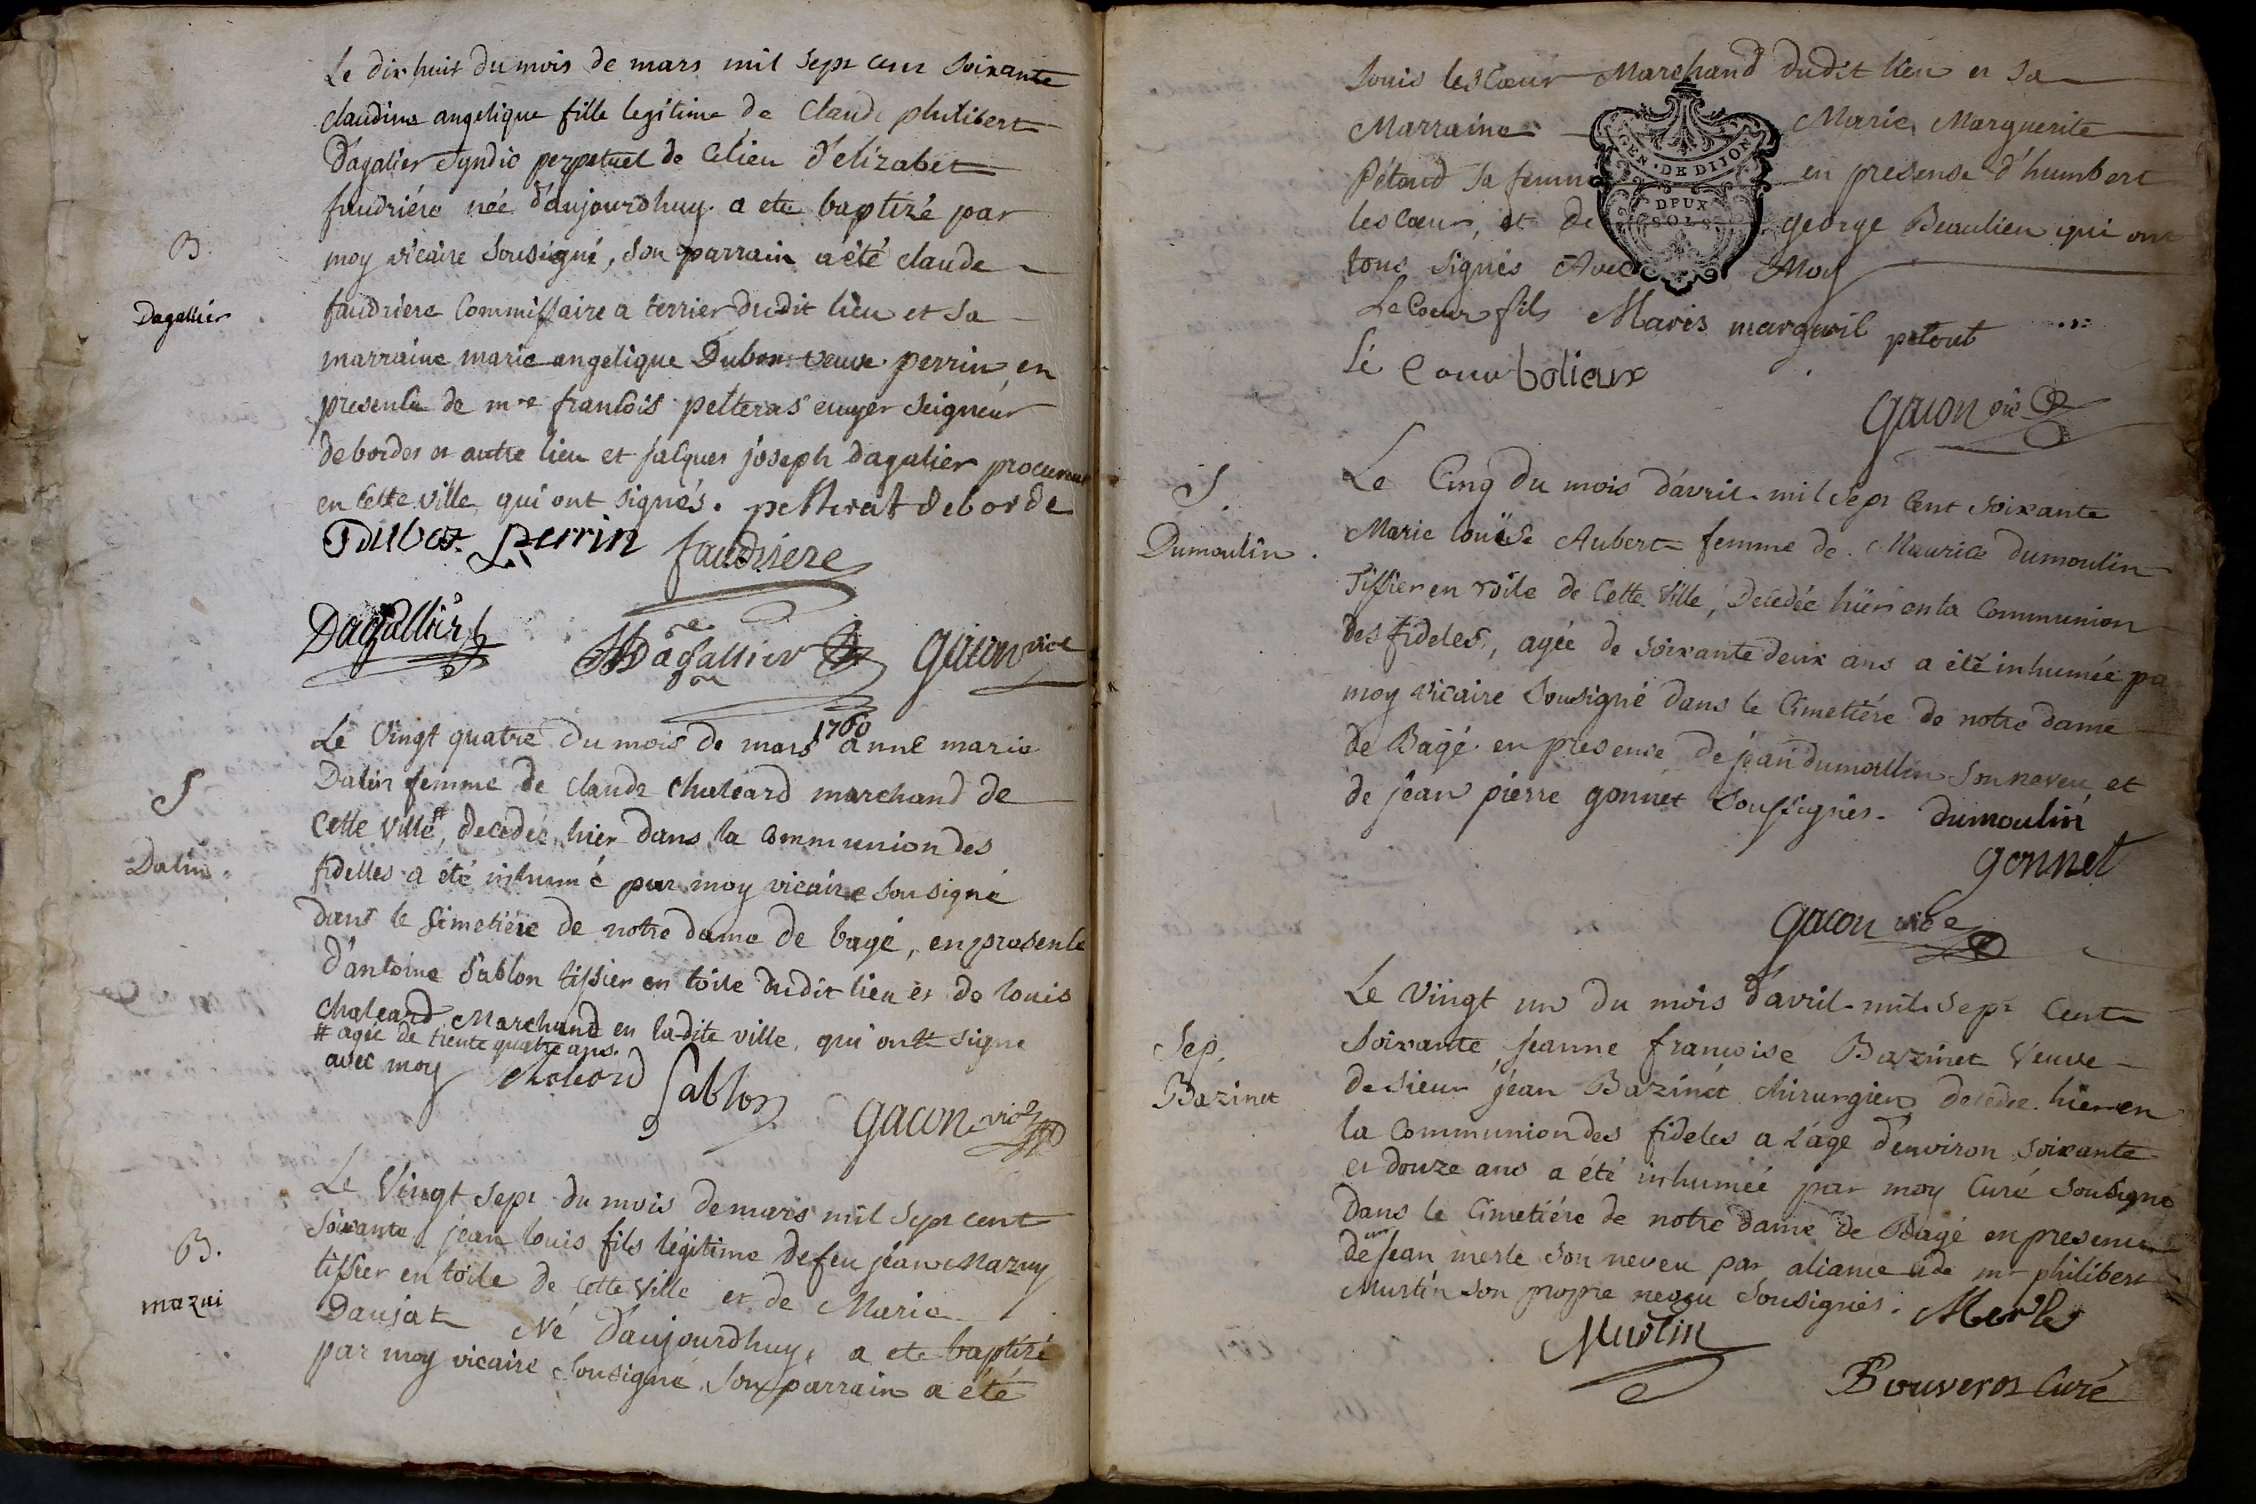 Le dix huit du mois de mars mil sept cent soixante
claudine angelique fille legitime de Claude philibert
Dagalier syndic perpetuel de celieu d'élizabet
faudriére née d'aujourdhuy a ete baptizé par
B.
moy vicaire sousigné, son parrain a été claude
Dagallier
faudriere Commissaire a terrier dudit lieu et sa
marraine marie angelique Dubost veuve perrin en
presence de mre francois pelteras ecuyer seigneur
debordes et autre lieu et jacques joseph dagalier procureur
en cette ville qui ont signés. pelterat deborde
Dubost perrin faudriere
Dagallier Dagallier gacon vice
1760
Le Vingt quatre du mois de mars anne marie
S
Dalin femme de claude chaleard marchand de
cette ville #, decedée hier dans la communion des
Dalin.
fidelles a été inhumé par moy vicaire sousigné
dans le simetiére de notre dame de bagé, en presence
d'antoine sablon tissier en toile dudit lieu et de louis
chaleard Marchand en ladite ville, qui ont signe
# agée de trente quatre ans.
avec moy chaleard Sablon
gacon vice
Le Vingt sept du mois de mars mil sept cent
B.
soixante jean louis fils légitime defeu jean Mazuy
mazui
tissier en toile de cette Ville et de Marie
Daujat Né D'aujourdhuy, a ete baptizé
par moy vicaire sousigné son parrain a été
louis lescœur Marchand dudit lieu et sa
Marraine Marie Marguerite
GEN. DE DIJON
Pétoud sa femme en presense d'humbert
DEUX
SOLS
lescœur, et de george Beaulieu qui ont
tous signés Avec Moy
Le Coeur fils Marie margueril petout
Le Coeur bolieux
gacon vic
S.
Le Cinq du mois d'avril mil sept cent soixante
Dumoulin.
Marie louïse Aubert femme de Maurice dumoulin
Tissier en toile de Cette Ville, Decedée hier en la Communion
des fideles, agée de soixante deux ans a été inhumée pa
moy vicaire sousigné dans le Cimetiére de notre dame
de Bagé en presence de jean dumoulin son neveu et
de jean pierre gonnet soussignés. dumoulin
gonnet
gacon vice
Le Vingt un du mois d'avril mil sept Cent
Sep.
Soixante jeanne francoise Bazinet Veuve
Bazinet
de sieur jean Bazinet chirurgien decedee hier en
la Communion des fideles a l'age d'environ soixante
et douze ans a été inhumée par moy Curé sousigné
Dans le Cimetiére de notre dame de Bagé en presence
de jean merle son neveu par aliance et de mr philibert
Mustin son propre neveu sousignés. Merle
Mustin
Bouveros Curé